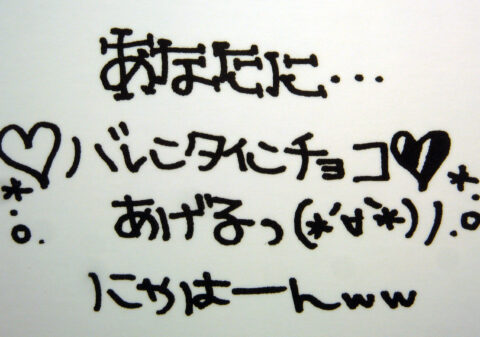 あなたに…
♡バレンタインチョコ♥
あげるっ(*´∀`*)ノ
にゃはーんww